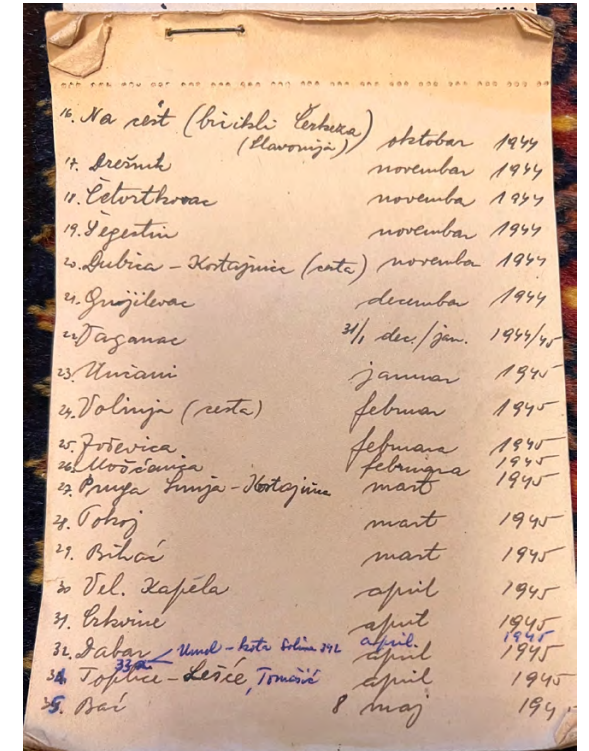 16. Na cest (bicikli Čerkeza) oktobar 1944
(Slavonija)
17. Drežnik novembar 1944
18. Četvrtkovac novemba 1944
19. Šegestin novembar 1944
20. Dubica - Kostajnica (cesta) novemba 1944
21. Gnojilevac decembar 1944
22. Taganac 31/1 dec./jan. 1944/45
23. Unčani januar 1945
24. Volinja (cesta) februar 1945
25. februara 1945
26. Mošćanica februara 1945
27. Pruga Sunja - Kostajnica mart 1945
28. Tokoj mart 1945
29. Bihać mart 1945
30 Vel. Kapela april 1945
31. Crkvine april 1945
32. Dabar april 1945
33 Umol - kota Solina 342 april. 1945
34. Toplice - Lešće, Tomašić april 1945
35. Bać 8 maj 194